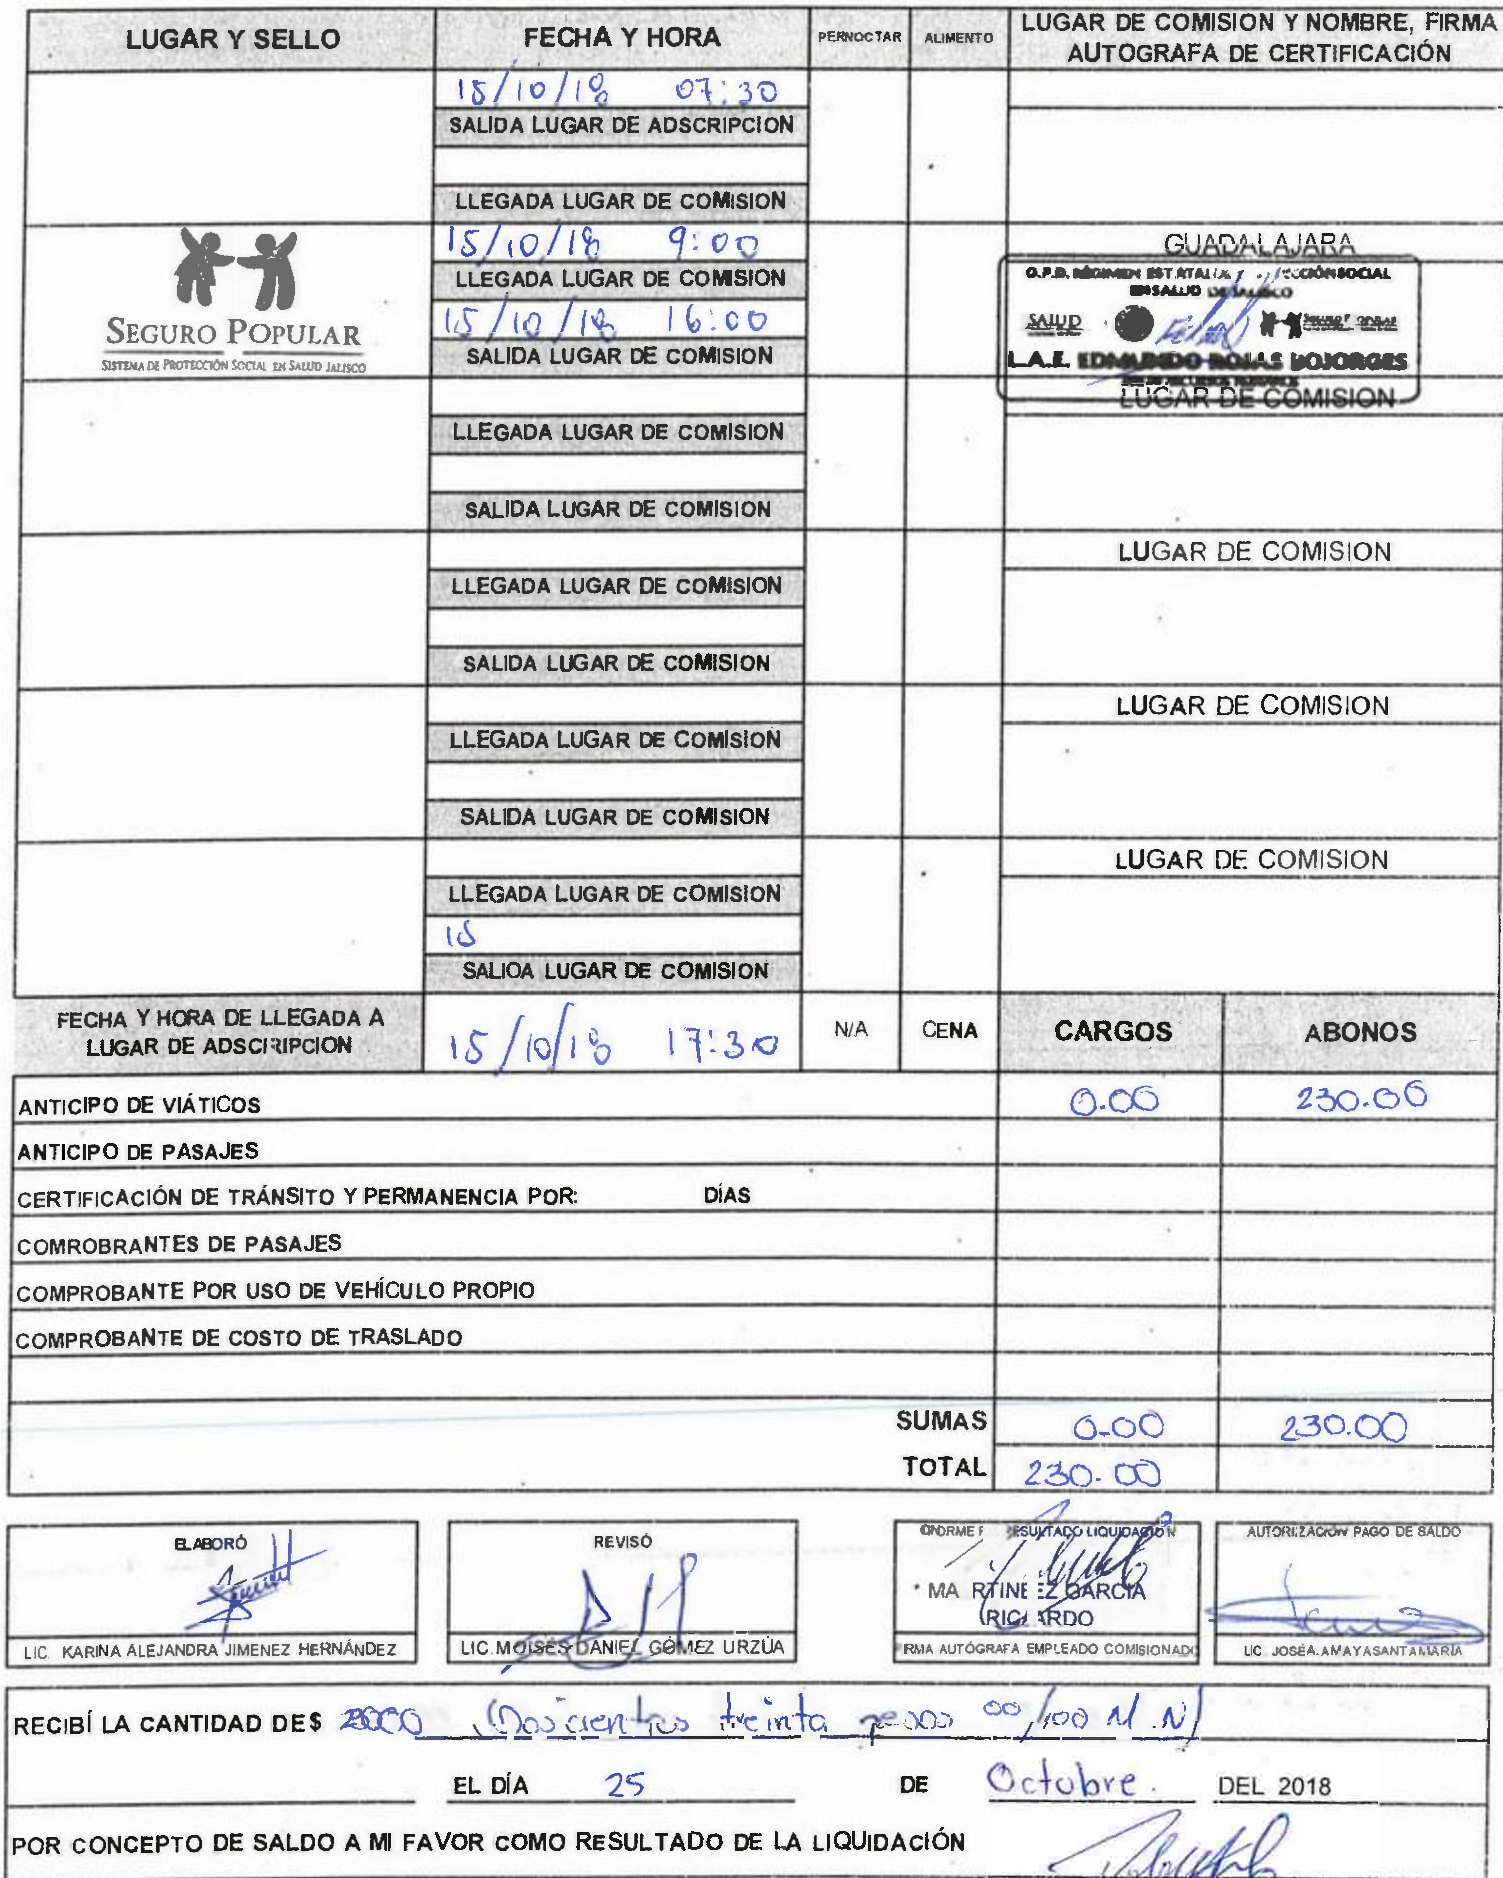 LUGAR Y SELLO FECHA Y HORA PERNOCTAR ALIMENTO LUGAR DE COMISION Y NOMBRE, FIRMA
AUTOGRAFA DE CERTIFICACIÓN
15/10/18 07:30
SALIDA LUGAR DE ADSCRIPCION
LLEGADA LUGAR DE COMISION
15/10/18 9:00 GUADALAJARA
LLEGADA LUGAR DE COMISION
15/10/18 16:00
SALIDA LUGAR DE COMISION
SEGURO POPULAR
SISTEMA DE PROTECCIÓN SOCIAL EN SALUD JALISCO
O.P.D. RÉGIMEN ESTATAL SOCIAL
EN SALUD DE JALISCO
SALUD
L.A.E. EDMUNDO ROJAS BOJORGES
LUGAR DE COMISION
LLEGADA LUGAR DE COMISION
SALIDA LUGAR DE COMISION
LUGAR DE COMISION
LLEGADA LUGAR DE COMISION
SALIDA LUGAR DE COMISION
LUGAR DE COMISION
LLEGADA LUGAR DE COMISION
SALIDA LUGAR DE COMISION
LUGAR DE COMISION
LLEGADA LUGAR DE COMISION
15
SALIOA LUGAR DE COMISION
FECHA Y HORA DE LLEGADA A
LUGAR DE ADSCRIPCION
15/10/18 17:30 N/A CENA CARGOS ABONOS
ANTICIPO DE VIÁTICOS 0.00 230.00
ANTICIPO DE PASAJES
CERTIFICACIÓN DE TRÁNSITO Y PERMANENCIA POR: DÍAS
COMROBRANTES DE PASAJES
COMPROBANTE POR USO DE VEHÍCULO PROPIO
COMPROBANTE DE COSTO DE TRASLADO
SUMAS 0.00 230.00
TOTAL 230.00
ELABORÓ
LIC. KARINA ALEJANDRA JIMENEZ HERNÁNDEZ
REVISÓ
LIC. MOISES DANIEL GÓMEZ URZÚA
RESULTADO LIQUIDACION
MARTINEZ GARCIA
RICARDO
RMA AUTÓGRAFA EMPLEADO COMISIONADO
AUTORIZACIÓN PAGO DE SALDO
LIC. JOSÉ A. AMAYA SANTAMARIA
RECIBÍ LA CANTIDAD DE $ (Doscientos treinta pesos 00/100 M.N)
EL DÍA 25 DE Octubre. DEL 2018
POR CONCEPTO DE SALDO A MI FAVOR COMO RESULTADO DE LA LIQUIDACIÓN